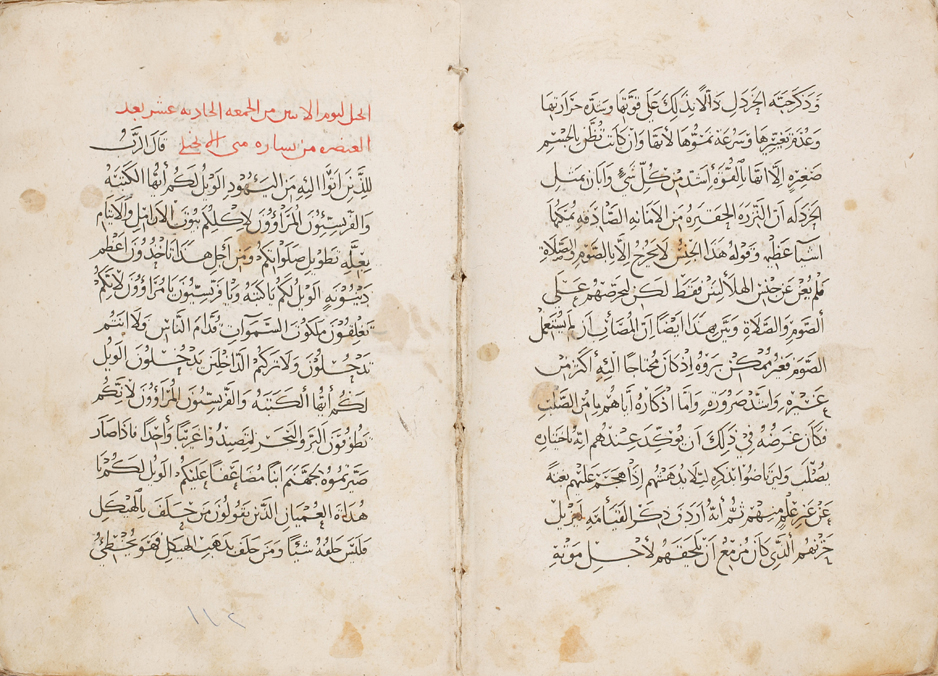 وذكر حبّه الخردل دالّا بذلك على قوتها وشده حرارتها
وعدم تغييرها وسرعة نموّها لانها وان كانت تُظن بالجسم
صغيره الّا انها بالقوّه اشد من كل شي وابان بمثل
الخردله ان النزره الحقيره من الامانه الصادقه
اشيا عظيمه وقوله هذا الجنس لا يخرج الّا بالصوم والصلاة
فلم عن جنس فقط لكن ليحرضهم علي
الصوم والصلاة بهذا ايضا ان المصاب ان لم يستعمل
الصوم فغير ممكن بروه اذ كان محتاجا اليه اكثر من
غيره واشد ضروره واما اذكاره اياهم بامر الصلب
فكان غرضه في ذلك ان يوكد عندهم انه باختياره
يصلب وليرتاضوا بتذكره ليلا يدهشهم اذا هجم عليهم بغته
عن غير علم منهم ثم انه اردف ذكر القيامه ليزيل
حزنهم الذي كان مزمع ان يلحقهم لاجل موته
انجيل اليوم الاثنين من الجمعه الحاديه عشر بعد
العنصره من بشاره متى قال الرب
للذين اتوا اليه من اليهود الويل لكم ايها الكتبه
والفريسيون المراؤون لاكلكم بيوت الارامل والايتام
بعلّه تطويل صلواتكم ومن اجل هذا تاخذون اعظم
دينونه الويل لكم ياكتبه ويا فريسيون يا مراؤون لانكم
تغلقون ملكوت السموات قدّام الناس ولا انتم
تدخلون ولا تتركون الداخلين يدخلون الويل
لكم ايها الكتبه والفريسيون المراؤون لانكم
تطوفون البر والبحر لتصيدوا غريبًا واحدًا فاذا صار
صيرتموه لجهنم ابنًا مضاعفًا عليكم الويل لكم يا
هداة العميان الذين تقولون من حلف بالهيكل
فليس حلفه شيًا ومن حلف بذهب الهيكل فهو يخطئ
١١٢